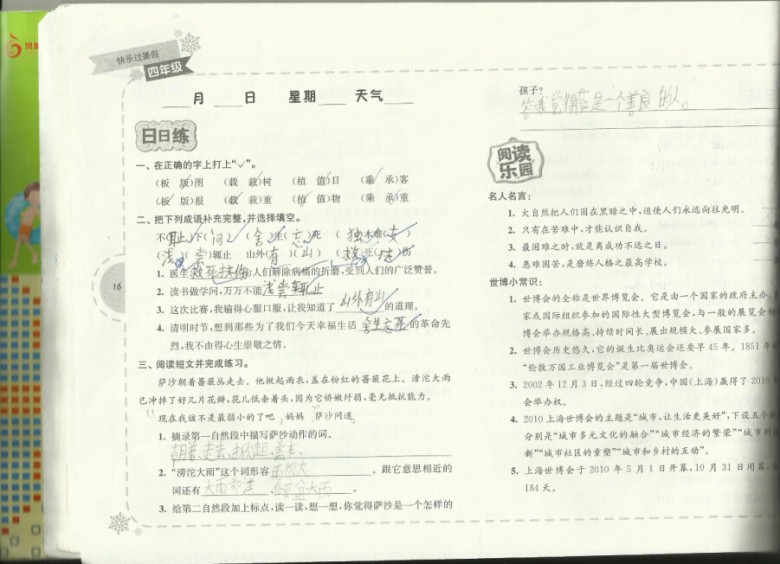 快乐过暑假
四年级
月 日 星期 天气
日日练
一、在正确的字上打上“✓”。
(板 版)图 (载 栽)树 (植 值)日 (乘 承)客
(板 版)报 (载 栽)重 (植 值)物 (乘 承)重
二、把下列成语补充完整,并选择填空。
不(耻)下(问) (舍)生(忘)死 (独)木难(支)
(浅)(尝)辄止 山外(有)(山) (救)死(扶)伤
1. 医生救死扶伤,为人们解除病痛的折磨,受到人们的广泛赞誉。
2. 读书做学问,万万不能浅尝辄止
3. 这次比赛,我输得心服口服,让我知道了山外有山的道理。
4. 清明时节,想到那些为了我们今天幸福生活舍生忘死的革命先
烈,我不由得心生崇敬之情。
三、阅读短文并完成练习。
萨沙朝着蔷薇丛走去。他掀起雨衣,盖在粉红的蔷薇花上。滂沱大雨
已冲掉了好几片花瓣,花儿低垂着头,因为它娇嫩纤弱,毫无抵抗能力。
现在我该不是最弱小的了吧 妈妈 萨沙问道
1. 摘录第一自然段中描写萨沙动作的词。
朝着、走去、掀起、盖在
2. “滂沱大雨”这个词形容雨很大。跟它意思相近的
词还有大雨如注、倾盆大雨。
3. 给第二自然段加上标点,读一读,想一想,你觉得萨沙是一个怎样的
16
孩子?
答:我觉得他是一个善良的人。
阅读乐园
名人名言:
1. 大自然把人们困在黑暗之中,迫使人们永远向往光明。
2. 只有在苦难中,才能认识自我。
3. 最困难之时,就是离成功不远之日。
4. 患难困苦,是磨炼人格之最高学校。
世博小常识:
1. 世博会的全称是世界博览会。它是由一个国家的政府主办,
家或国际组织参加的国际性大型博览会,与一般的展览会相
博会举办规格高、持续时间长、展出规模大、参展国家多。
2. 世博会历史悠久,它的诞生比奥运会还要早 45 年。1851 年
“伦敦万国工业博览会”是第一届世博会。
3. 2002 年 12 月 3 日,经过四轮竞争,中国(上海)赢得了 2010
会举办权。
4. 2010 上海世博会的主题是“城市,让生活更美好”,下设五个
分别是“城市多元文化的融合”“城市经济的繁荣”“城市科
新”“城市社区的重塑”“城市和乡村的互动”。
5. 上海世博会于 2010 年 5 月 1 日开幕,10 月 31 日闭幕,
184 天。